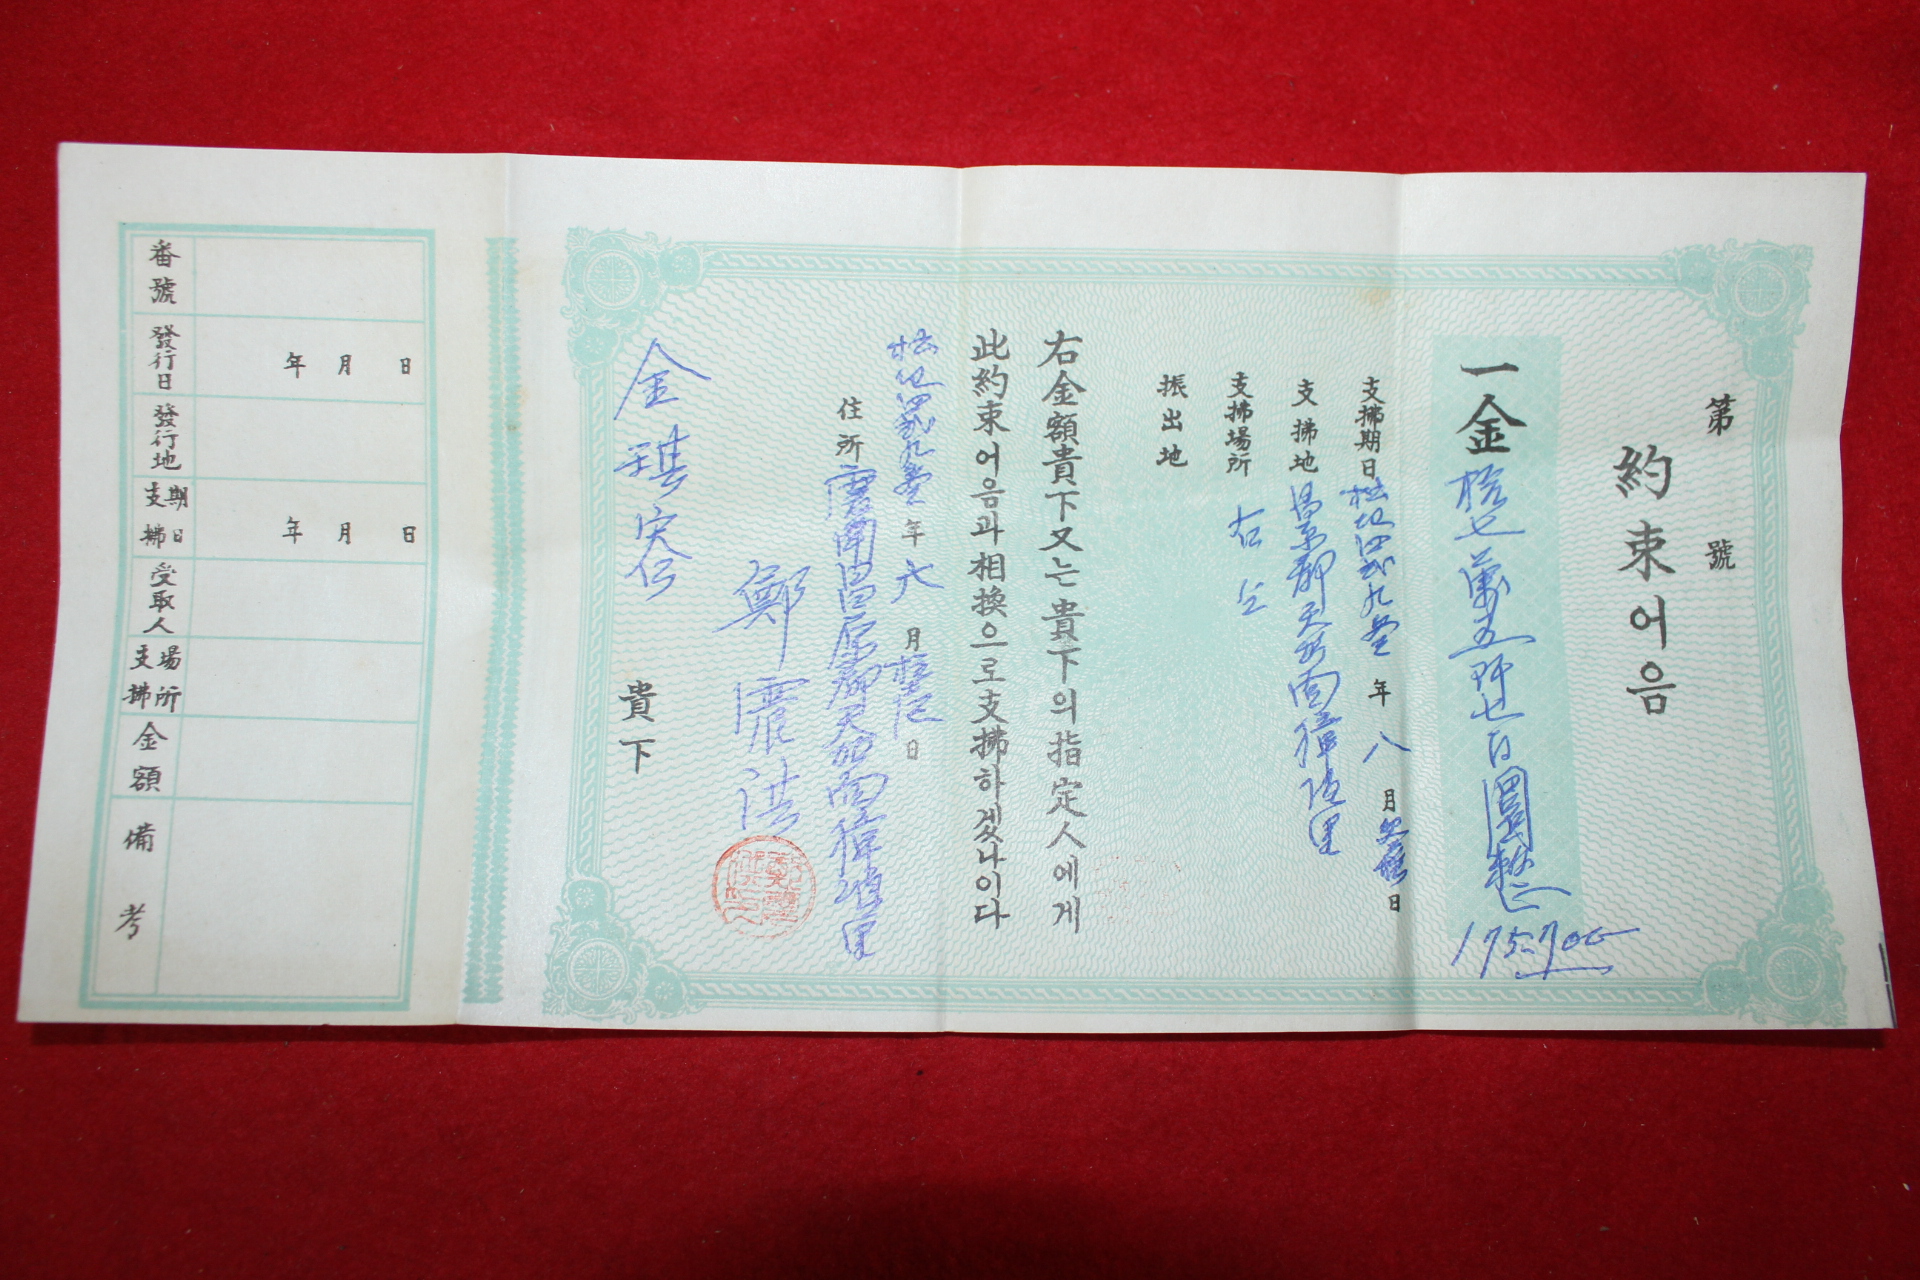 第 號
約束어음
一金 拾七萬五阡七百圓整
175,700
支拂期日 檀紀四貳九 年 八 月 日
支拂地 昌原郡天加面 里
支拂場所 右仝
振出地
右金額貴下又는貴下의指定人에게
此約束어음과相換으로支拂하겠나이다
檀紀四貳九 年 六 月 日
住所 慶南昌原郡天加面 里
鄭 洪
金琪容 貴下
番號
發行日 年 月 日
發行地
支拂期日 年 月 日
受取人
支拂場所
金額
備考